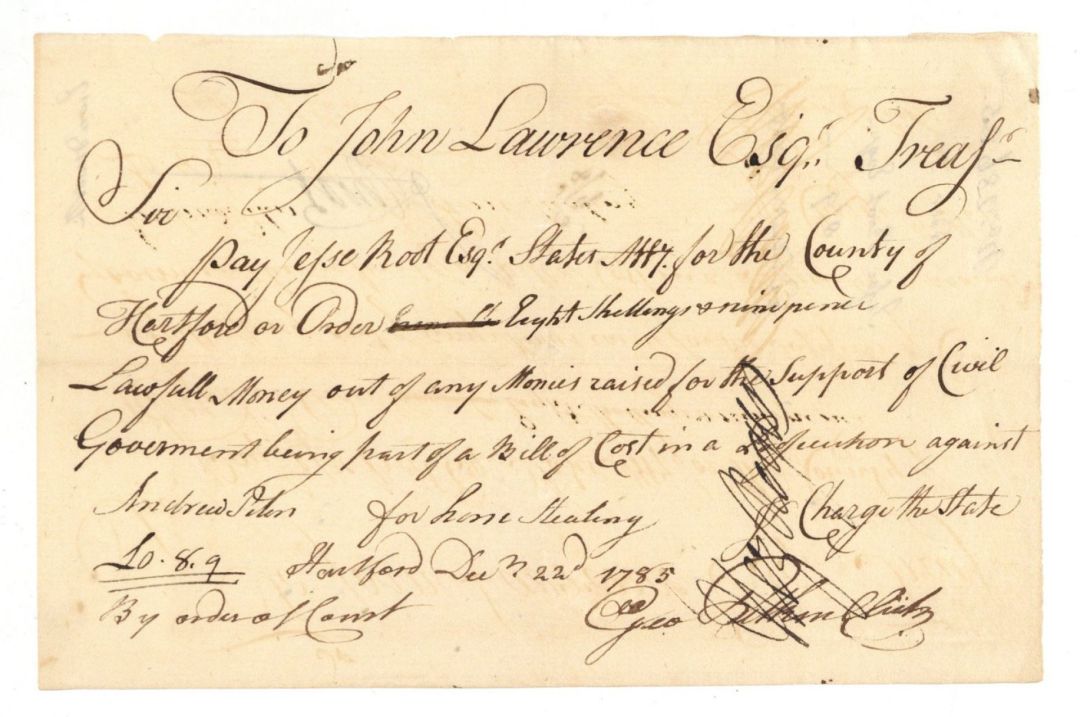 To John Lawrence Esqr. Treasr
Sir
Pay Jesse Root Esqr. States Atty. for the County of
Hartford or Order Eight Shellings & nine pence
Lawfull Money out of any Monies raised for the Support of Civil
Goverment being part of a Bill of Cost in a Prosecution against
Andrew for horse Stealing & Charge the State
£0.8.9 Hartford Decr 22d 1785
By order of Court Geo Pitkin Clerk